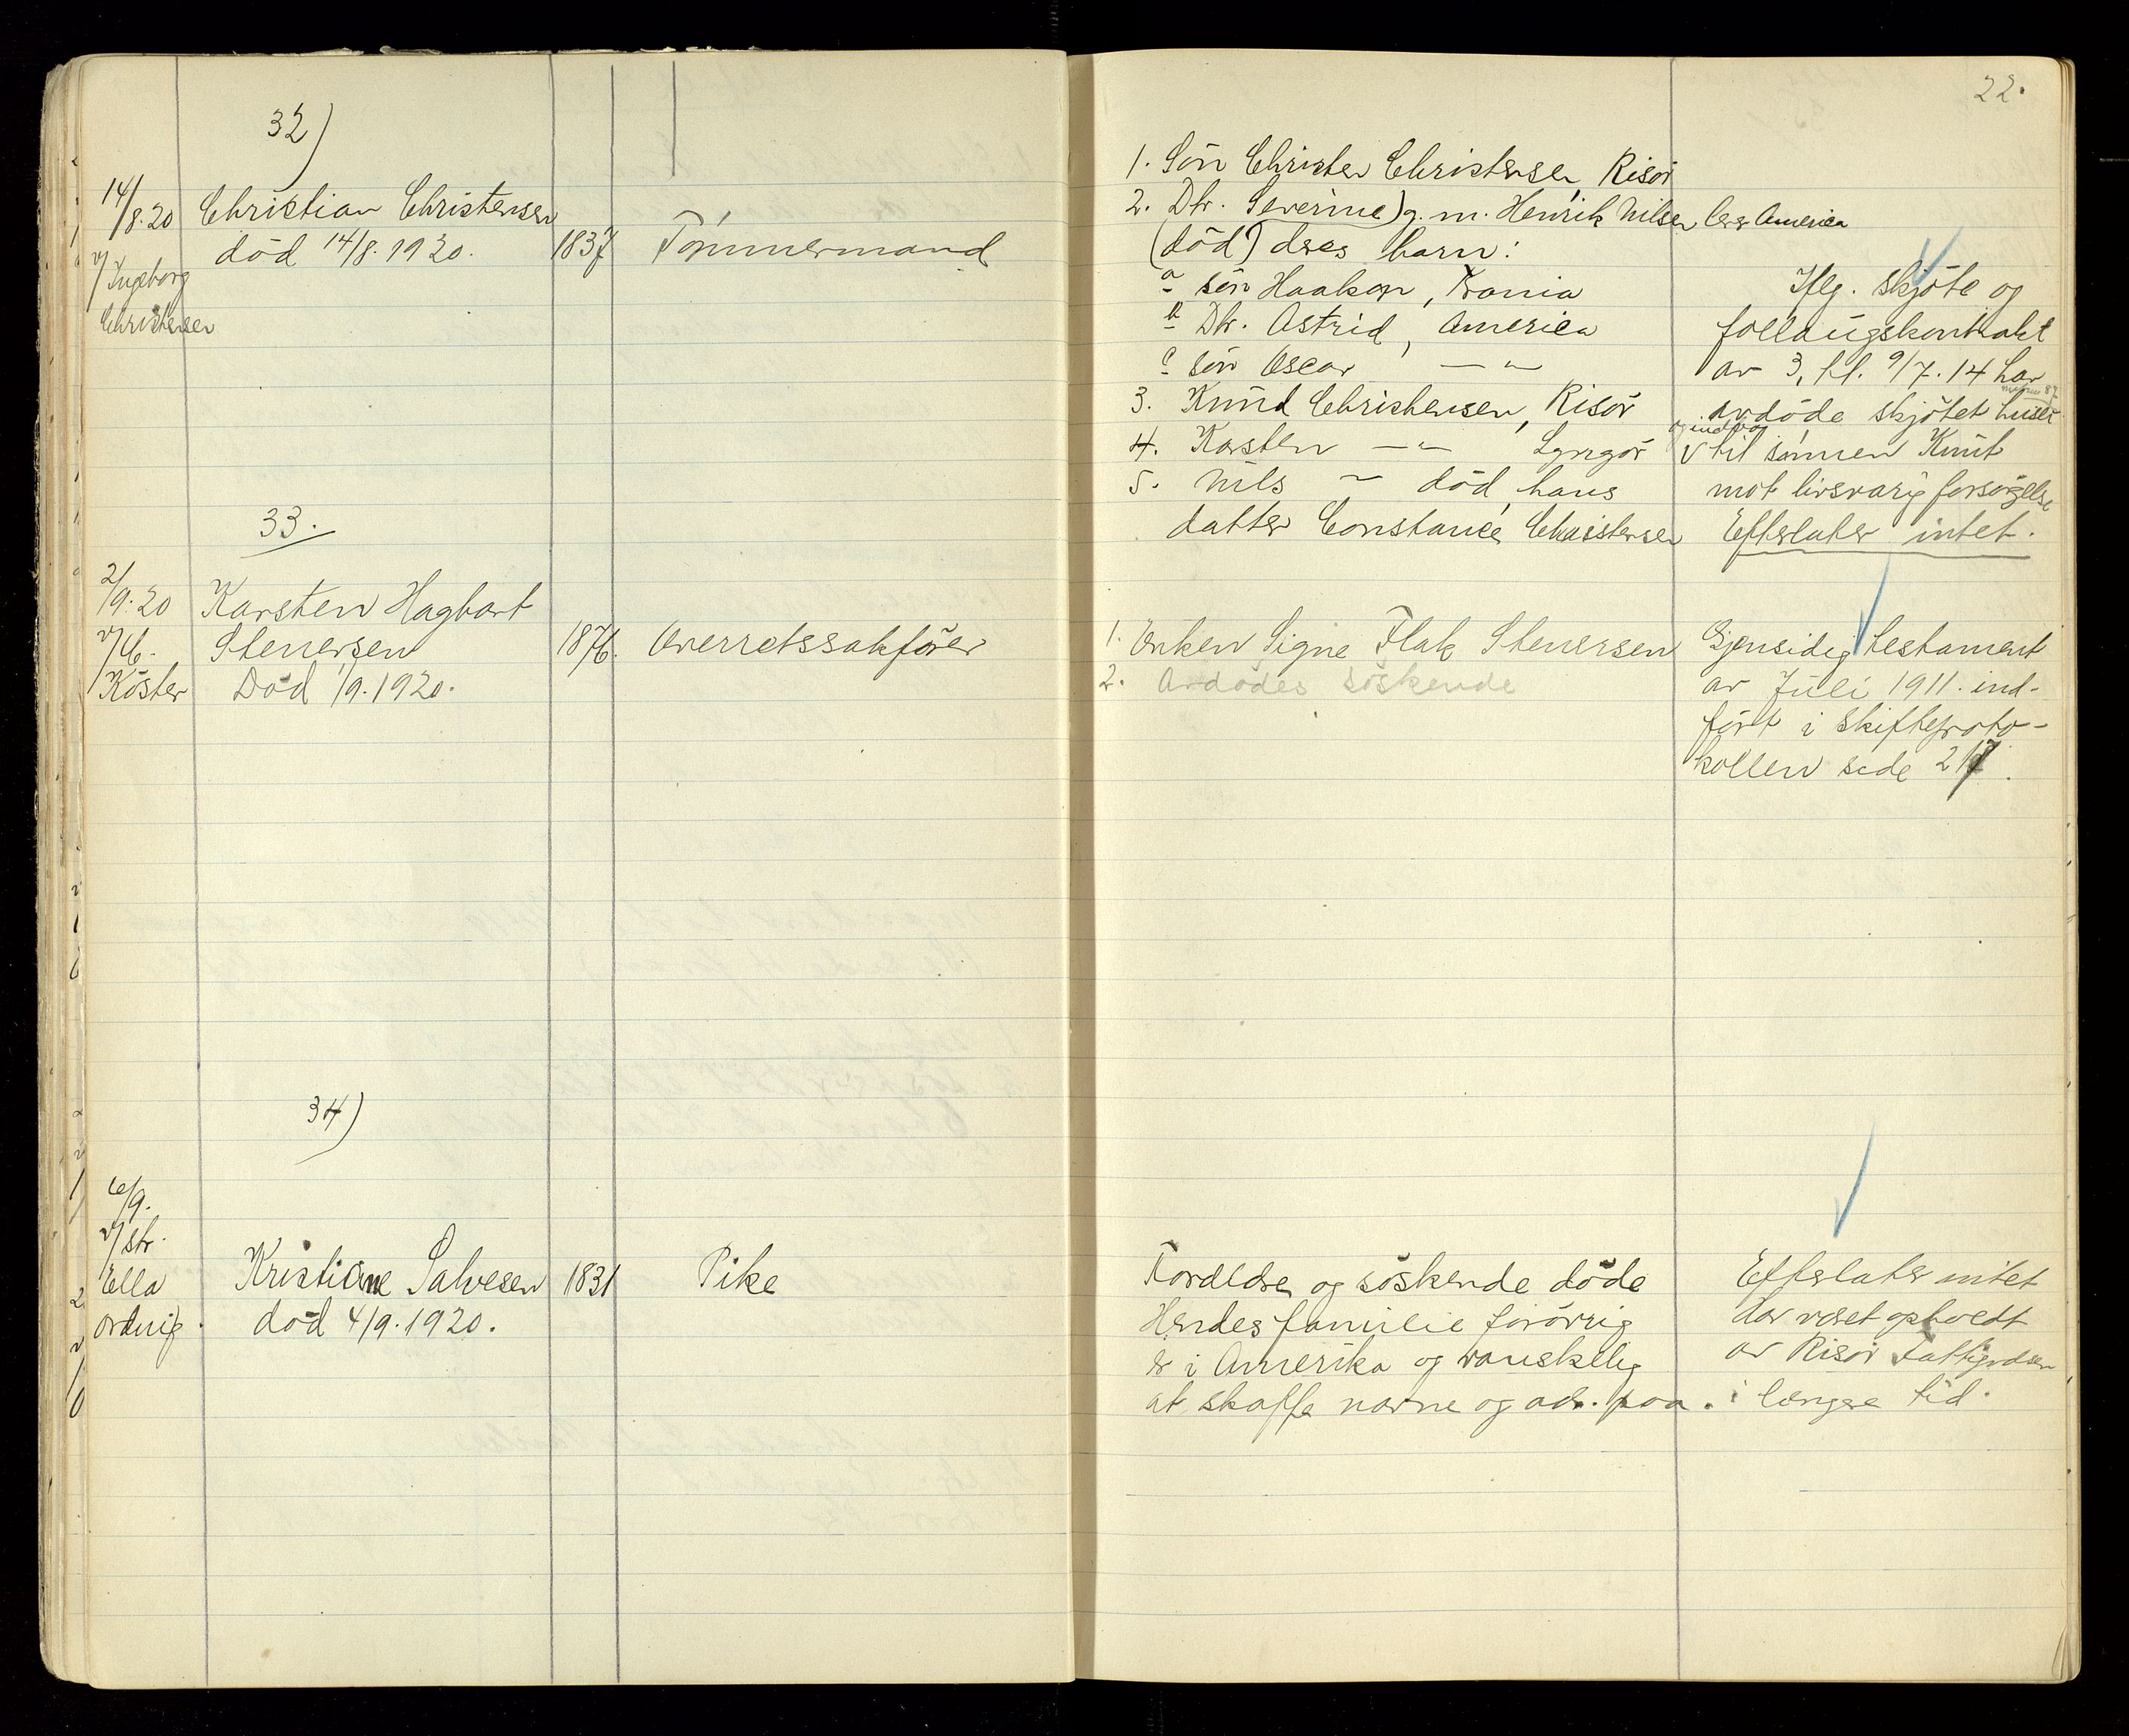 22.
32)
14/8.20 Christian Christensen
død 14/8.1920. 1837 Tømmermand
v/ Ingeborg
Christensen
1. Søn Christen Christensen, Risør
2. Dtr. Severine) g. m. Henrik Nilsen America
(død) dres barn:
a søn Haakon, Trania
b Dtr. Astrid, America
c søn Oscar — " —
3. Knud Christensen, Risør
4. Karsten — " — Lyngør
5. Nils — død, hans
datter Constance Christensen
Iflg. skjøte og
føllaugskontrakt
av 3, tl. 9/7.14 har
avdøde skjøtet huset
og indbo
v til sønnen Knut
mot livsvarig forsørgelse
Efterlater intet.
33.
2/9.20 Karsten Hagbart
Stenersen 1876. Overretssakfører
v/ C.
Köster Død 1/9.1920.
1. Enken Signe Flak Stenersen
2. Avdødes søskende
Gjensidig testament
av Juli 1911. ind-
ført i skifteproto-
kollen side 217.
34)
6/9.
v/ str.
Ella
Ordvig.
Kristiane Salvesen 1831 Pike
død 4/9.1920.
Foreldre og søskende døde
Hendes familie forøvrig
er i Amerika og vanskelig
at skaffe navne og adr. paa.
Efterlater intet
har været opholdt
av Risør Fattigvæsen
i længre tid.